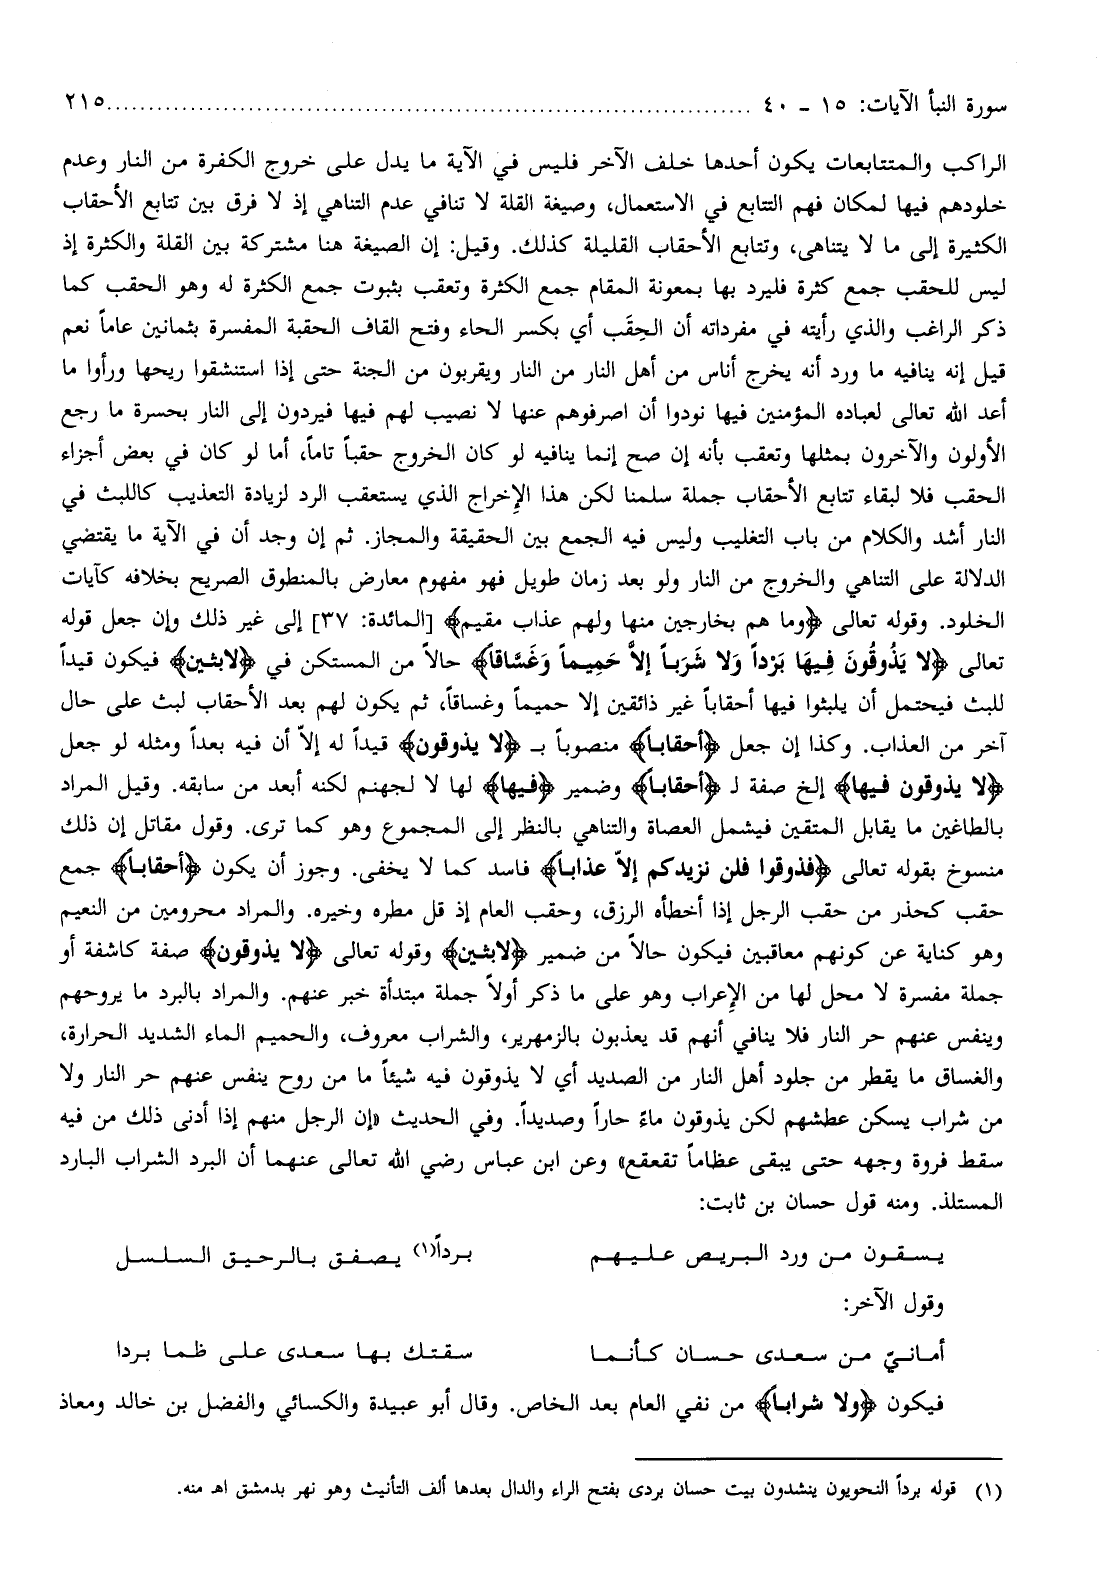 سورة النبأ الآيات: ١٥ ـ ٤٠ ........................................................................ ٢١٥
الراكب والمتتابعات يكون أحدها خلف الآخر فليس في الآية ما يدل على خروج الكفرة من النار وعدم
خلودهم فيها لمكان فهم التتابع في الاستعمال، وصيغة القلة لا تنافي عدم التناهي إذ لا فرق بين تتابع الأحقاب
الكثيرة إلى ما لا يتناهى، وتتابع الأحقاب القليلة كذلك. وقيل: إن الصيغة هنا مشتركة بين القلة والكثرة إذ
ليس للحقب جمع كثرة فليرد بها بمعونة المقام جمع الكثرة وتعقب بثبوت جمع الكثرة له وهو الحقب كما
ذكر الراغب والذي رأيته في مفرداته أن الحِقَب أي بكسر الحاء وفتح القاف الحقبة المفسرة بثمانين عاماً نعم
قيل إنه ينافيه ما ورد أنه يخرج أناس من أهل النار من النار ويقربون من الجنة حتى إذا استنشقوا ريحها ورأوا ما
أعد الله تعالى لعباده المؤمنين فيها نودوا أن اصرفوهم عنها لا نصيب لهم فيها فيردون إلى النار بحسرة ما رجع
الأولون والآخرون بمثلها وتعقب بأنه إن صح إنما ينافيه لو كان الخروج حقباً تاماً، أما لو كان في بعض أجزاء
الحقب فلا لبقاء تتابع الأحقاب جملة سلمنا لكن هذا الإخراج الذي يستعقب الرد لزيادة التعذيب كاللبث في
النار أشد والكلام من باب التغليب وليس فيه الجمع بين الحقيقة والمجاز. ثم إن وجد أن في الآية ما يقتضي
الدلالة على التناهي والخروج من النار ولو بعد زمان طويل فهو مفهوم معارض بالمنطوق الصريح بخلافه كآيات
الخلود. وقوله تعالى ﴿وما هم بخارجين منها ولهم عذاب مقيم﴾ [المائدة: ٣٧] إلى غير ذلك وإن جعل قوله
تعالى ﴿لا يَذُوقُونَ فِيهَا بَرْداً وَلا شَرَباً إلاَّ حَمِيماً وَغَسَّاقاً﴾ حالاً من المستكن في ﴿لابثين﴾ فيكون قيداً
للبث فيحتمل أن يلبثوا فيها أحقاباً غير ذائقين إلا حميماً وغساقاً، ثم يكون لهم بعد الأحقاب لبث على حال
آخر من العذاب. وكذا إن جعل ﴿أحقاباً﴾ منصوباً بـ ﴿لا يذوقون﴾ قيداً له إلاّ أن فيه بعداً ومثله لو جعل
﴿لا يذوقون فيها﴾ إلخ صفة لـ ﴿أحقاباً﴾ وضمير ﴿فيها﴾ لها لا لجهنم لكنه أبعد من سابقه. وقيل المراد
بالطاغين ما يقابل المتقين فيشمل العصاة والتناهي بالنظر إلى المجموع وهو كما ترى. وقول مقاتل إن ذلك
منسوخ بقوله تعالى ﴿فذوقوا فلن نزيدكم إلاّ عذاباً﴾ فاسد كما لا يخفى. وجوز أن يكون ﴿أحقاباً﴾ جمع
حقب كحذر من حقب الرجل إذا أخطأه الرزق، وحقب العام إذ قل مطره وخيره. والمراد محرومين من النعيم
وهو كناية عن كونهم معاقبين فيكون حالاً من ضمير ﴿لابثين﴾ وقوله تعالى ﴿لا يذوقون﴾ صفة كاشفة أو
جملة مفسرة لا محل لها من الإعراب وهو على ما ذكر أولاً جملة مبتدأة خبر عنهم. والمراد بالبرد ما يروحهم
وينفس عنهم حر النار فلا ينافي أنهم قد يعذبون بالزمهرير، والشراب معروف، والحميم الماء الشديد الحرارة،
والغساق ما يقطر من جلود أهل النار من الصديد أي لا يذوقون فيه شيئاً ما من روح ينفس عنهم حر النار ولا
من شراب يسكن عطشهم لكن يذوقون ماءً حاراً وصديداً. وفي الحديث «إن الرجل منهم إذا أدنى ذلك من فيه
سقط فروة وجهه حتى يبقى عظاماً تقعقع» وعن ابن عباس رضي الله تعالى عنهما أن البرد الشراب البارد
المستلذ. ومنه قول حسان بن ثابت:
يسقون من ورد البريص عليهم برداً(١) يصفق بالرحيق السلسل
وقول الآخر:
أمانيّ من سعدى حسان كأنما سقتك بها سعدى على ظما بردا
فيكون ﴿ولا شراباً﴾ من نفي العام بعد الخاص. وقال أبو عبيدة والكسائي والفضل بن خالد ومعاذ
(١) قوله برداً النحويون ينشدون بيت حسان بردى بفتح الراء والدال بعدها ألف التأنيث وهو نهر بدمشق اهـ منه.